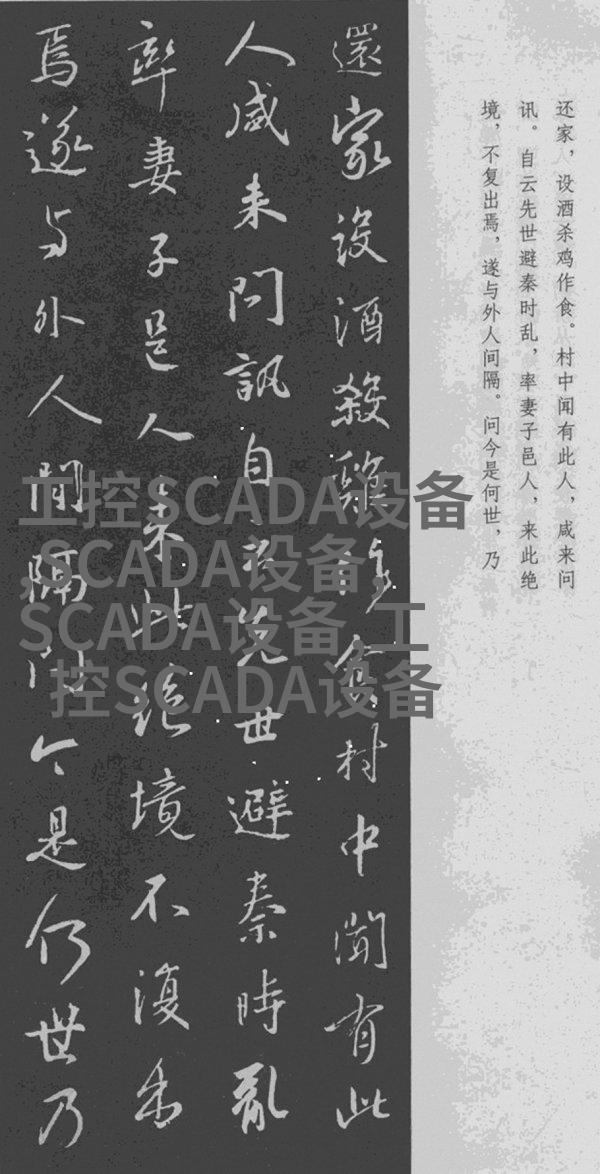 還家設酒殺雞作食村中聞有此
人咸来問訊自云先世避秦時亂
率妻子邑人来此絶境不復出
焉遂与外人間隔問今是何世乃
还家，设酒杀鸡作食。村中闻有此人，咸来问
讯。自云先世避秦时乱，率妻子邑人，来此绝
境，不复出焉，遂与外人间隔。问今是何世，乃
工控SCADA设备
,SCADA设备,
SCADA设备,工
控SCADA设备